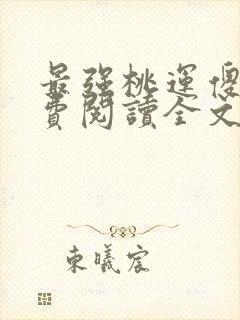 最強桃運傻
費閱讀全文
東曦宸